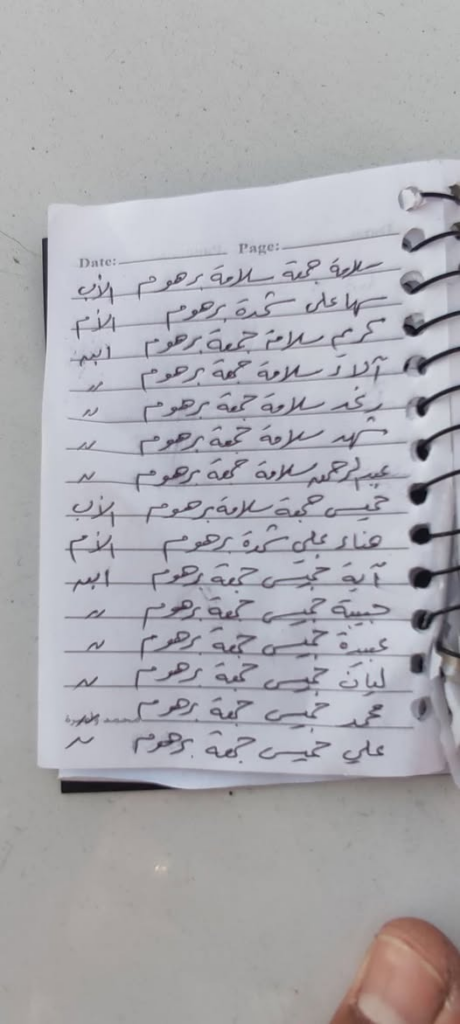 Date: Page:
سلامة جمعة سلامة برهوم الأب
سها علي شحدة برهوم الأم
كرم سلامة جمعة برهوم ابن
آلاء سلامة جمعة برهوم ~
رغد سلامة جمعة برهوم ~
شهد سلامة جمعة برهوم ~
عبدالرحمن سلامة جمعة برهوم ~
خميس جمعة سلامة برهوم الأب
هناء علي شحدة برهوم الأم
آية خميس جمعة برهوم
حبيبة خميس جمعة برهوم ~
عبيدة خميس جمعة برهوم ~
ليان خميس جمعة برهوم ~
محمد خميس جمعة برهوم
علي خميس جمعة برهوم ~